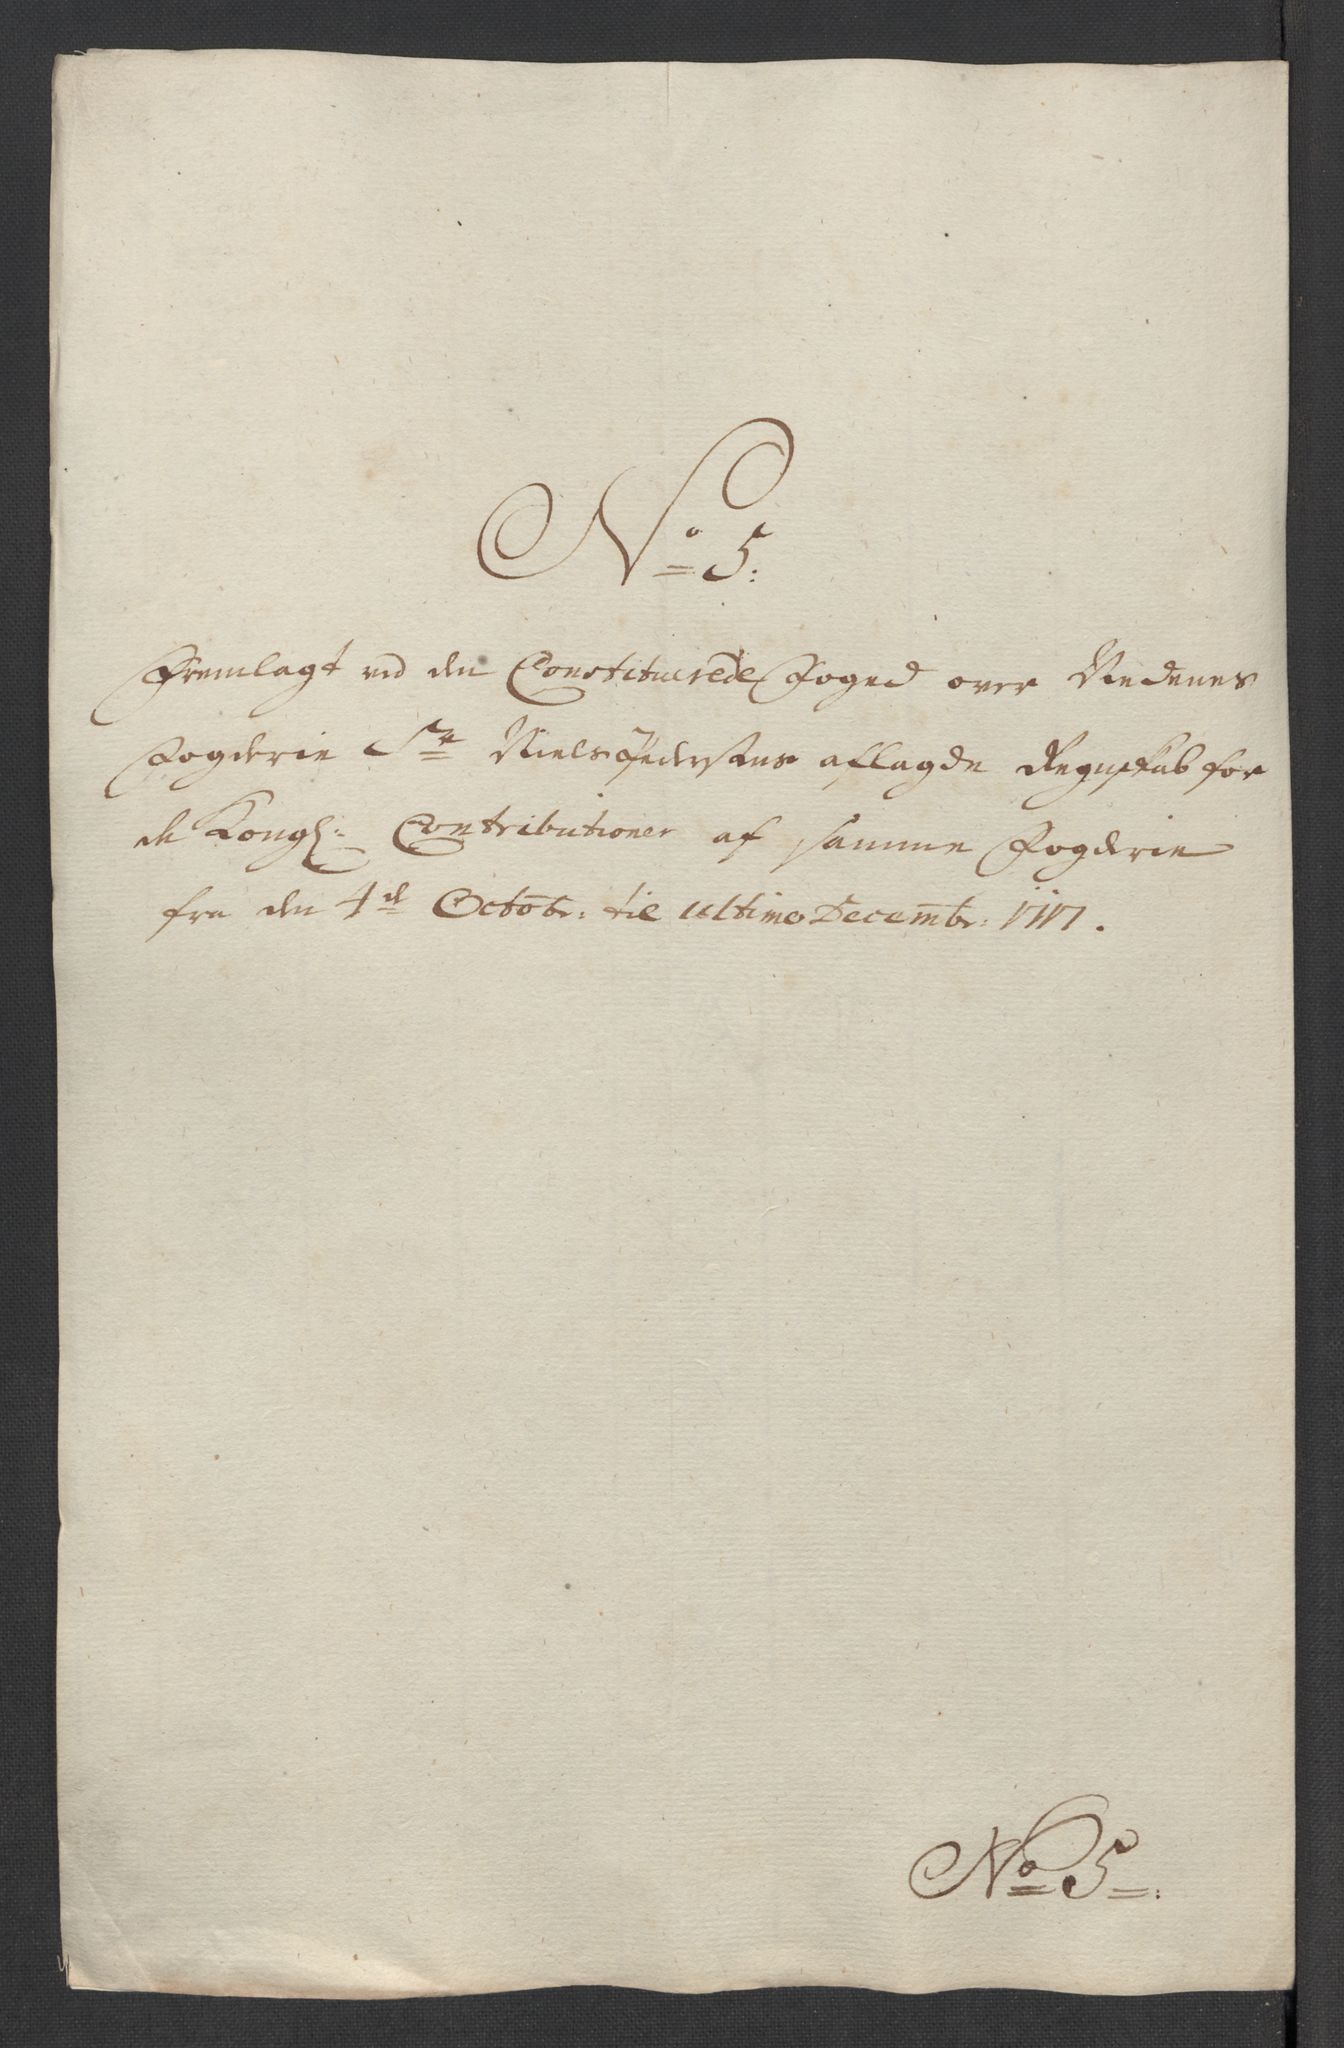 No 5:
Fremlagt ved den Constituerede Foged over Nedenes
Fogderie Sr Niels Pedersens aflagde Regnskab for
de Kongl: Contributioner af samme Fogderie
fra den 4de Octobr: til ultimo Decembr: 1717.
No 5: